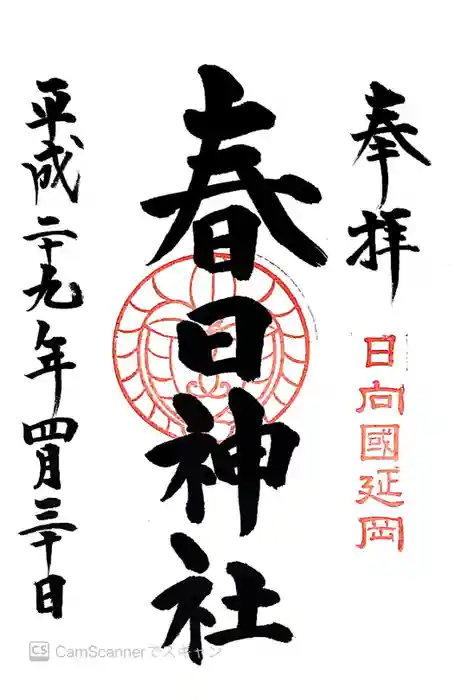 奉拝
日向國延岡
春日神社
平成二十九年四月三十日
CS CamScannerでスキャン